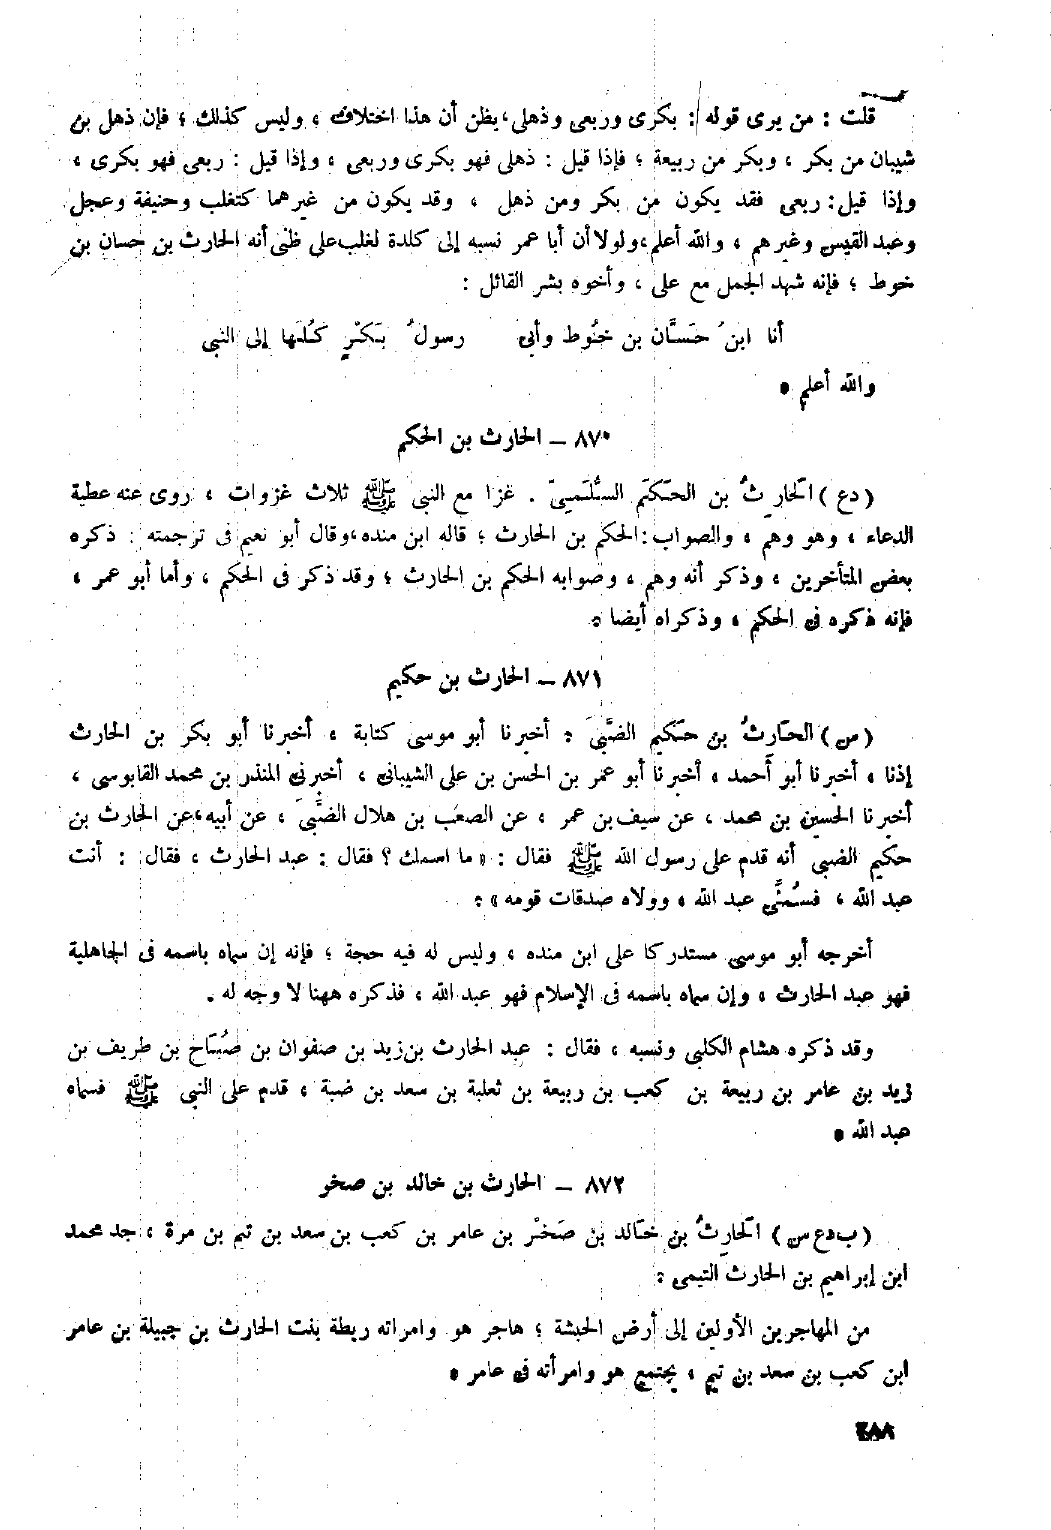 قلت : من يرى قوله : بكرى وربعى وذهلى ، يظن أن هذا اختلاف ، وليس كذلك ؛ فإن ذهل بن
شيبان من بكر ، وبكر من ربيعة ؛ فإذا قيل : ذهلى فهو بكرى وربعى ، وإذا قيل : ربعى فهو بكرى ،
وإذا قيل : ربعى فقد يكون من بكر ومن ذهل ، وقد يكون من غيرهما كتغلب وحنيفة وعجل
وعبد القيس وغيرهم ، والله أعلم ، ولولا أن أبا عمر نسبه إلى كلدة لغلب على ظنى أنه الحارث بن حسان بن
خوط ؛ فإنه شهد الجمل مع على ، وأخوه بشر القائل :
أنا ابنُ حَسَّان بن خُوط وأبى رسولُ بَكْرٍ كُلِّها إلى النبى
والله أعلم •
٨٧٠ – الحارث بن الحكم
( دع ) الْحَارِثُ بن الحَكَمَ السُّلَمِىّ . غزا مع النبى ﷺ ثلاث غزوات ، روى عنه عطية
الدعاء ، وهو وهم ، والصواب : الحكم بن الحارث ؛ قاله ابن منده ، وقال أبو نعيم فى ترجمته : ذكره
بعض المتأخرين ، وذكر أنه وهم ، وصوابه الحكم بن الحارث ؛ وقد ذكر فى الحكم ، وأما أبو عمر ،
فإنه ذكره فى الحكم ، وذكراه أيضا •
٨٧١ – الحارث بن حكيم
( س ) الحَارثُ بن حَكيم الضَّبِّىَ • أخبرنا أبو موسى كتابة ، أخبرنا أبو بكر بن الحارث
إذنا ، أخبرنا أبو أحمد ، أخبرنا أبو عمر بن الحسن بن على الشيبانى ، أخبرنى المنذر بن محمد القابوسى ،
أخبرنا الحسين بن محمد ، عن سيف بن عمر ، عن الصعَب بن هلال الضَّبِّىَ ، عن أبيه ، عن الحارث بن
حكيم الضبى أنه قدم على رسول الله ﷺ فقال : « ما اسمك ؟ فقال : عبد الحارث ، فقال : أنت
عبد الله ، فسُمِّى عبد الله ، وولاه صدقات قومه » •
أخرجه أبو موسى مستدركا على ابن منده ، وليس له فيه حجة ؛ فإنه إن سماه باسمه فى الجاهلية
فهو عبد الحارث ، وإن سماه باسمه فى الإسلام فهو عبد الله ، فذكره ههنا لا وجه له .
وقد ذكره هشام الكلبى ونسبه ، فقال : عبد الحارث بن زيد بن صفوان بن صُبَاح بن طريف بن
زيد بن عامر بن ربيعة بن كعب بن ربيعة بن ثعلبة بن سعد بن ضبة ، قدم على النبى ﷺ فسماه
عبد الله •
٨٧٢ – الحارث بن خالد بن صخر
( ب دع س ) الْحَارِثُ بن خَالد بن صَخْر بن عامر بن كعب بن سعد بن تيم بن مرة ، جد محمد
ابن إبراهيم بن الحارث التيمى •
من المهاجرين الأولين إلى أرض الحبشة ؛ هاجر هو وامراته ريطة بنت الحارث بن جبيلة بن عامر
ابن كعب بن سعد بن تيم ، يجتمع هو وامرأته فى عامر •